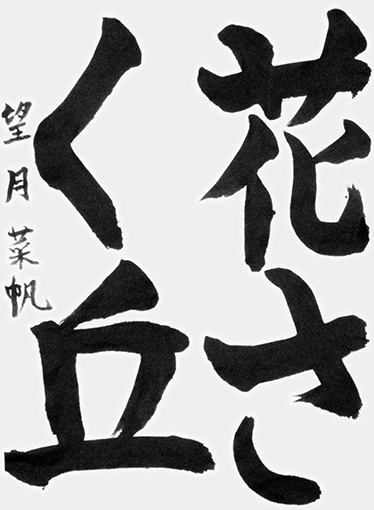 花さ
く丘
望月菜帆